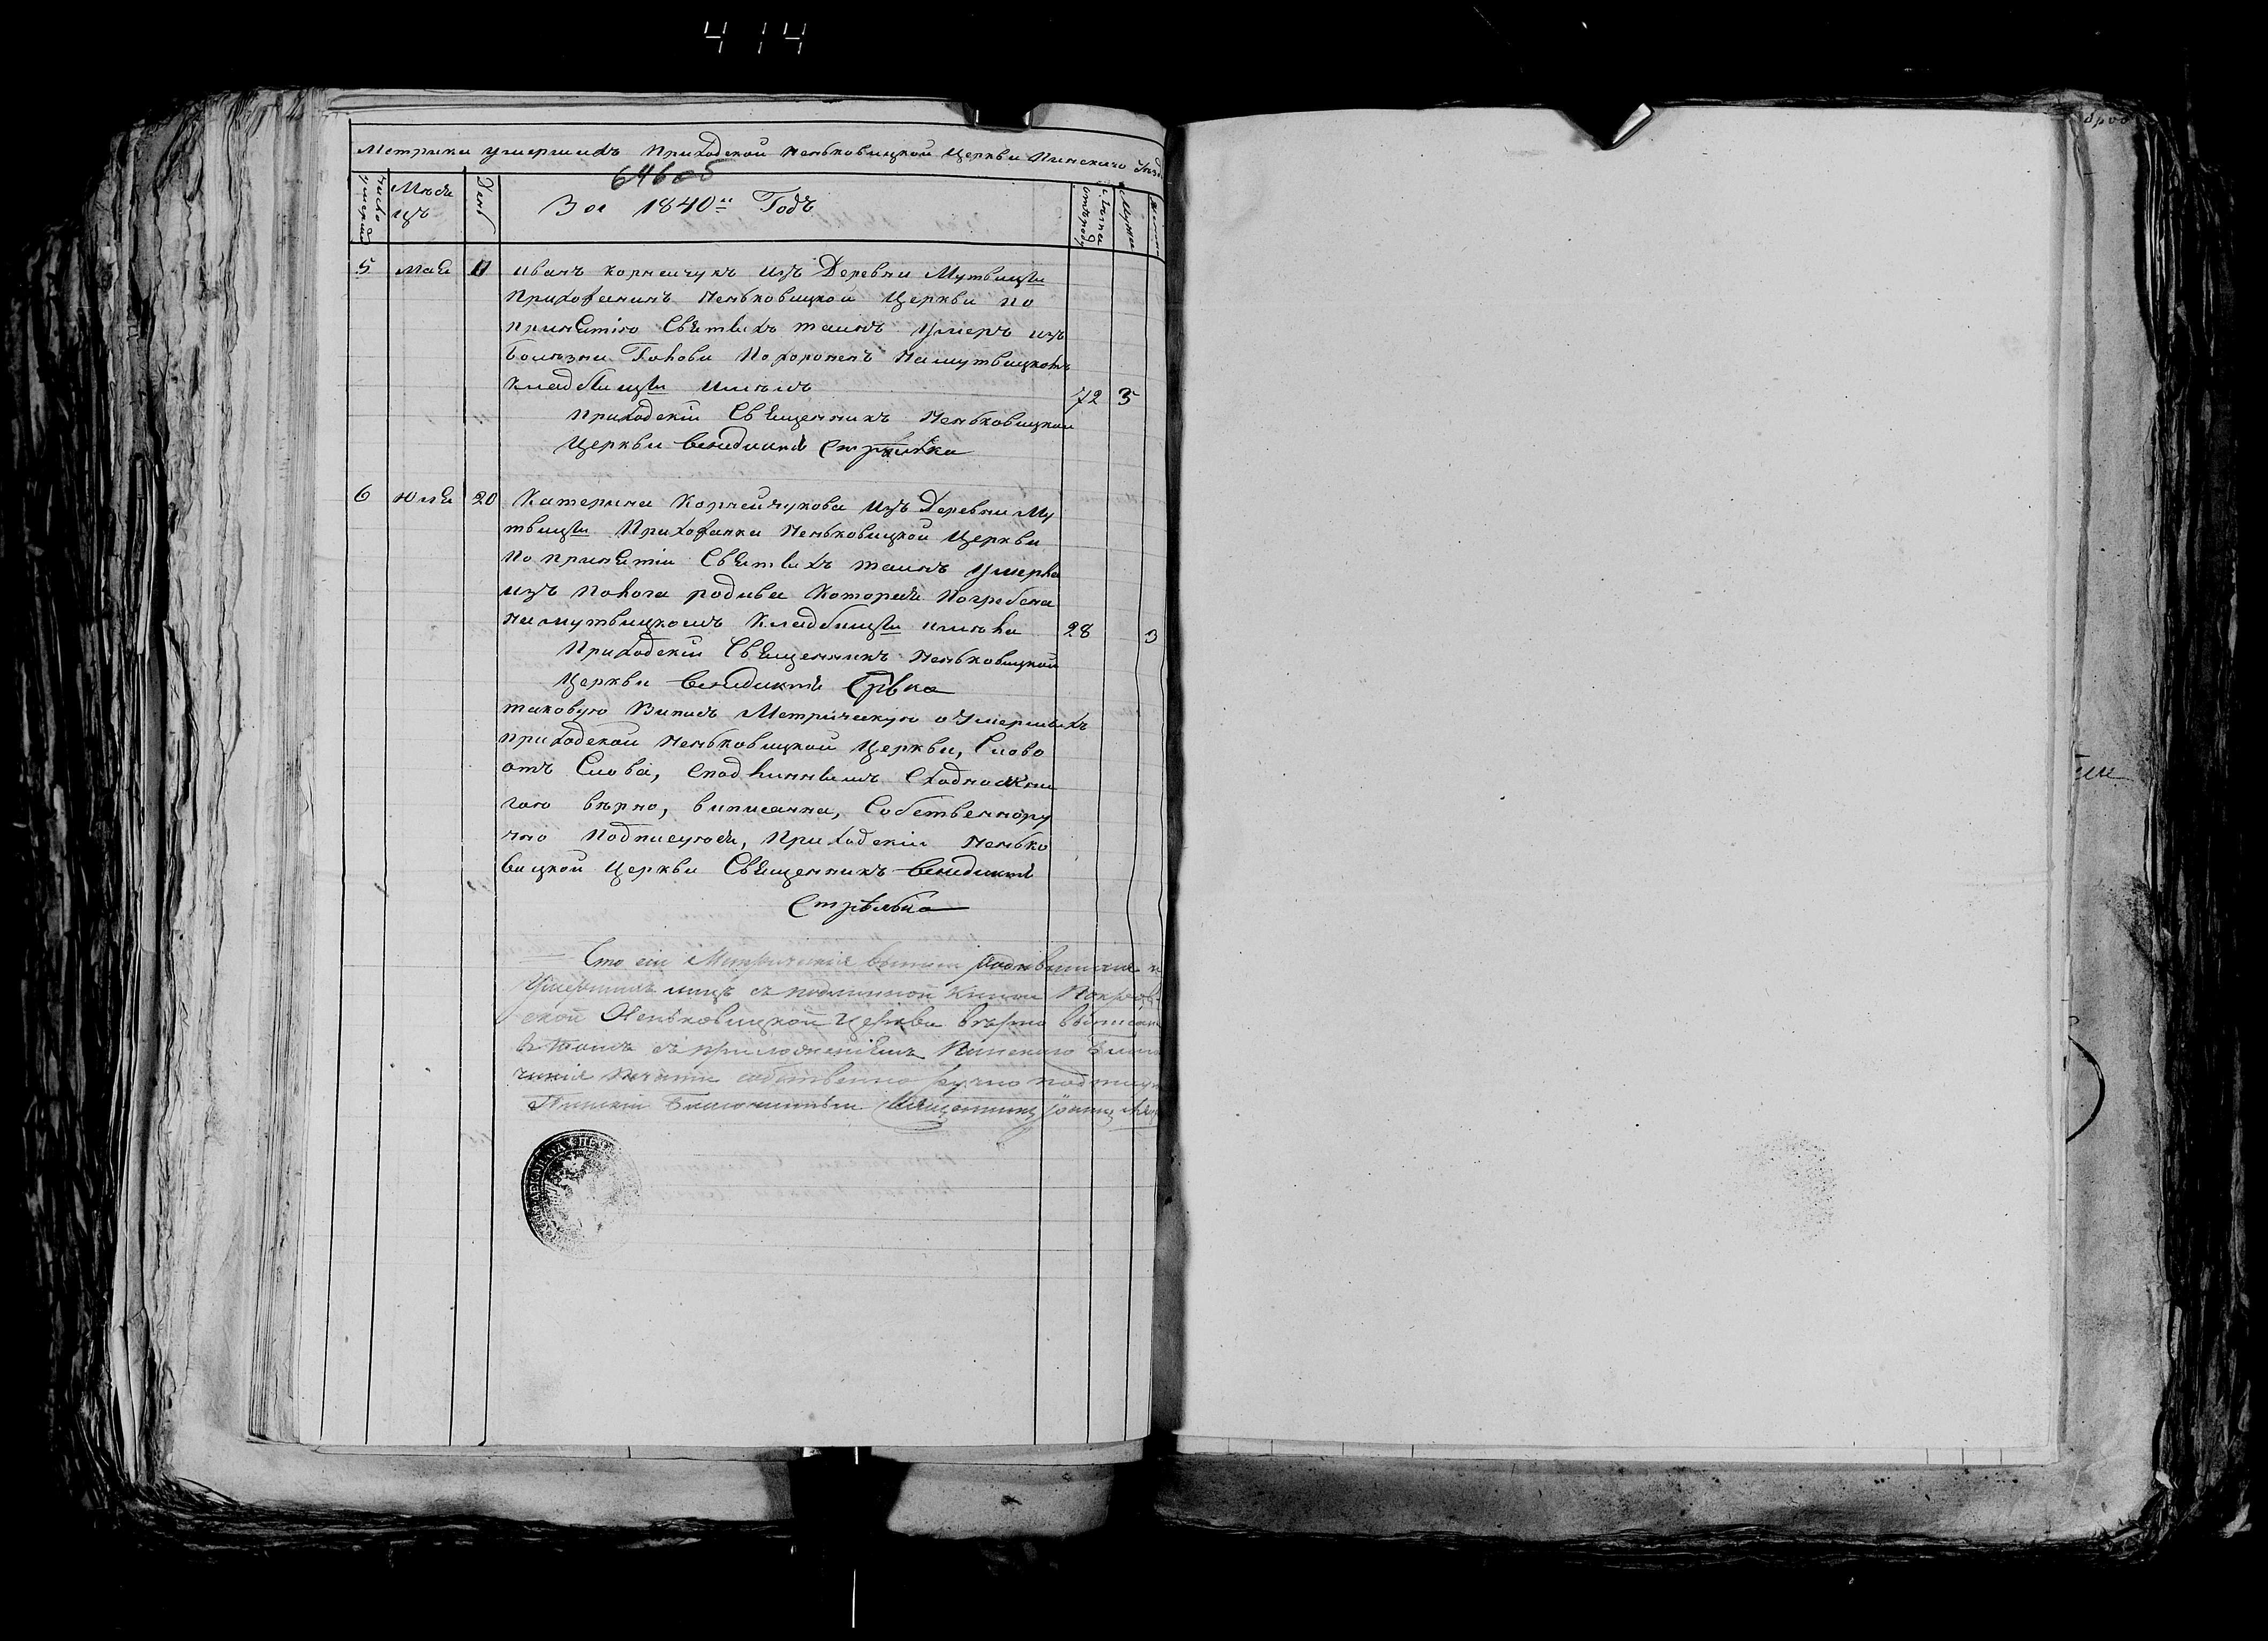 414
Метрики умершихъ Приходской Неньковицкой Церкви Пинскаго
646 об
Число умершихъ
Мѣся цъ
День
За 1840й Годъ
5 Мая 11 Иванъ Корнейчукъ изъ Деревни Мутвицы
Прихожанинъ Неньковицкой Церкви по
принятію Святыхъ таинъ умеръ изъ
болѣзни Головы Похороненъ на мутвицкомъ
кладбищы имѣлъ 72 3
Приходскій Священникъ Неньковицкой
Церкви Венидиктъ Стрельбка
6 Юля 20 Катерина Корнейчукова изъ Деревни Му
твицы Прихожанка Неньковицкой Церкви
по принятіи Святыхъ таинъ умерла
изъ полога родива которая Погребена
на мутвицкомъ Кладбищы имѣла 28 3
Приходскій Священникъ Неньковицкой
Церкви Венидиктъ
таковую Випись Метрическую о Умершихъ
приходской Неньковицкой Церкви, Слово
отъ Слова, Сподлиннымъ Сходно
гою вѣрно, виписанна, Собственнору
чно Подписуюся, Приходскій Ненько
вицкой Церкви Священникъ Венидиктъ
Стрѣльбка
Что сіи Метрическія выписи
Умершихъ лицъ съ подлинной Книгою Покров
ской Неньковицкой Церкви вѣрно выписан
в томъ съ приложеніемъ Пинскаго Благо
чинія Печати собственно ручно подпису
Пинскій Благочинный Священникъ Іоаннъ